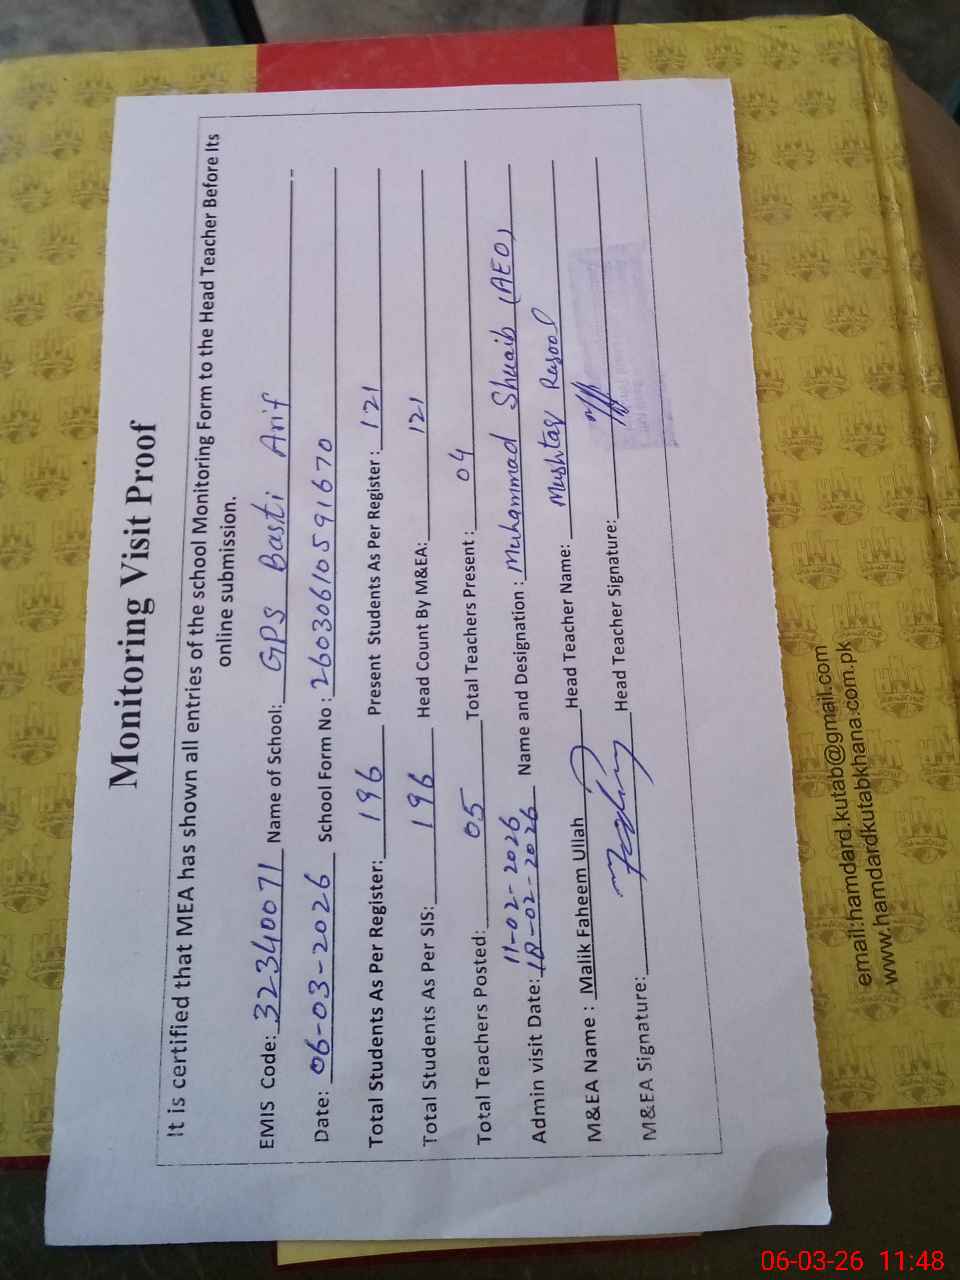 Monitoring Visit Proof
It is certified that MEA has shown all entries of the school Monitoring Form to the Head Teacher Before Its
online submission.
EMIS Code: 32340071 Name of School: GPS Basti Arif
Date: 06-03-2026 School Form No : 26030610591670
Total Students As Per Register: 196 Present Students As Per Register : 121
Total Students As Per SIS: 196 Head Count By M&EA: 121
Total Teachers Posted: 05 Total Teachers Present : 04
11-02-2026
Admin visit Date: 18-02-2026 Name and Designation : Muhammad Shuaib (AEO)
M&EA Name : Malik Faheem Ullah Head Teacher Name: Mushtaq Rasool
M&EA Signature: Head Teacher Signature:
email:hamdard.kutab@gmail.com
www.hamdardkutabkhana.com.pk
06-03-26 11:48